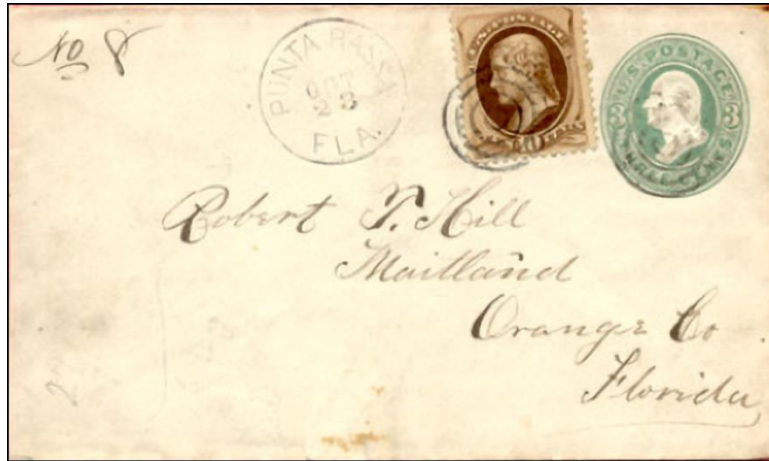 No 8
PUNTA RASSA
OCT
23
FLA.
U.S. POSTAGE
3 3
THREE CENTS
Robert T. Hill
Maitland
Orange Co
Florida